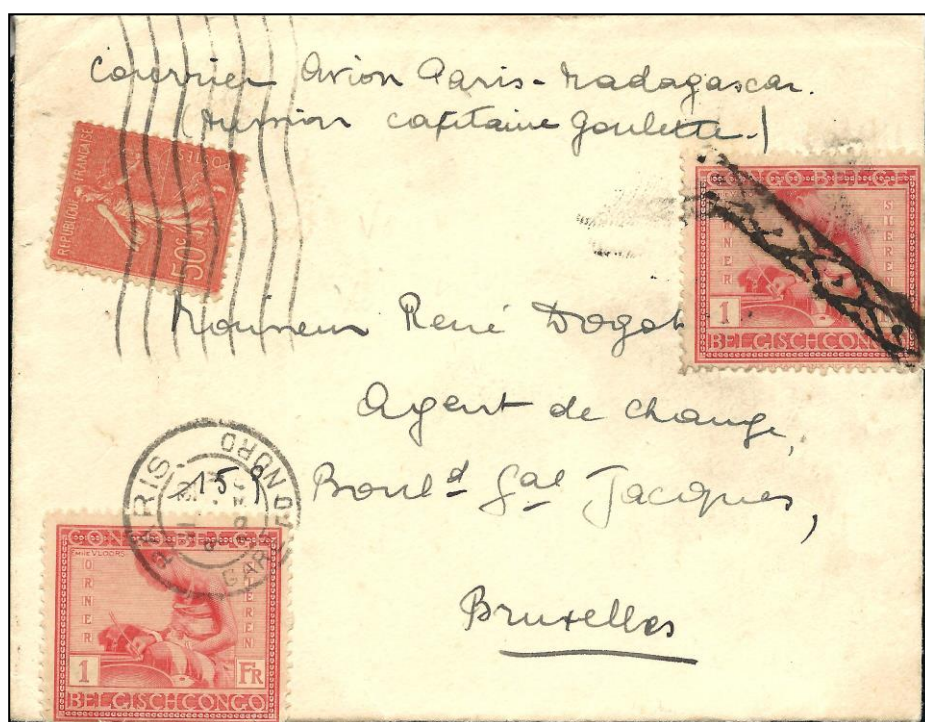 Courrier Avion Paris-Madagascar.
(Avion capitaine Goulette.)
REPUBLIQUE FRANÇAISE
POSTES
50c
CONGO BELGE
1
BELGISCH CONGO
Monsieur René
Agent de change,
Boulᵈ Gᵃˡ Jacques,
Bruxelles
PARIS
GARE DU NORD
159
CONGO BELGE
EMILE VLOORS
ORNER
SIEREN
1 FR
BELGISCH CONGO